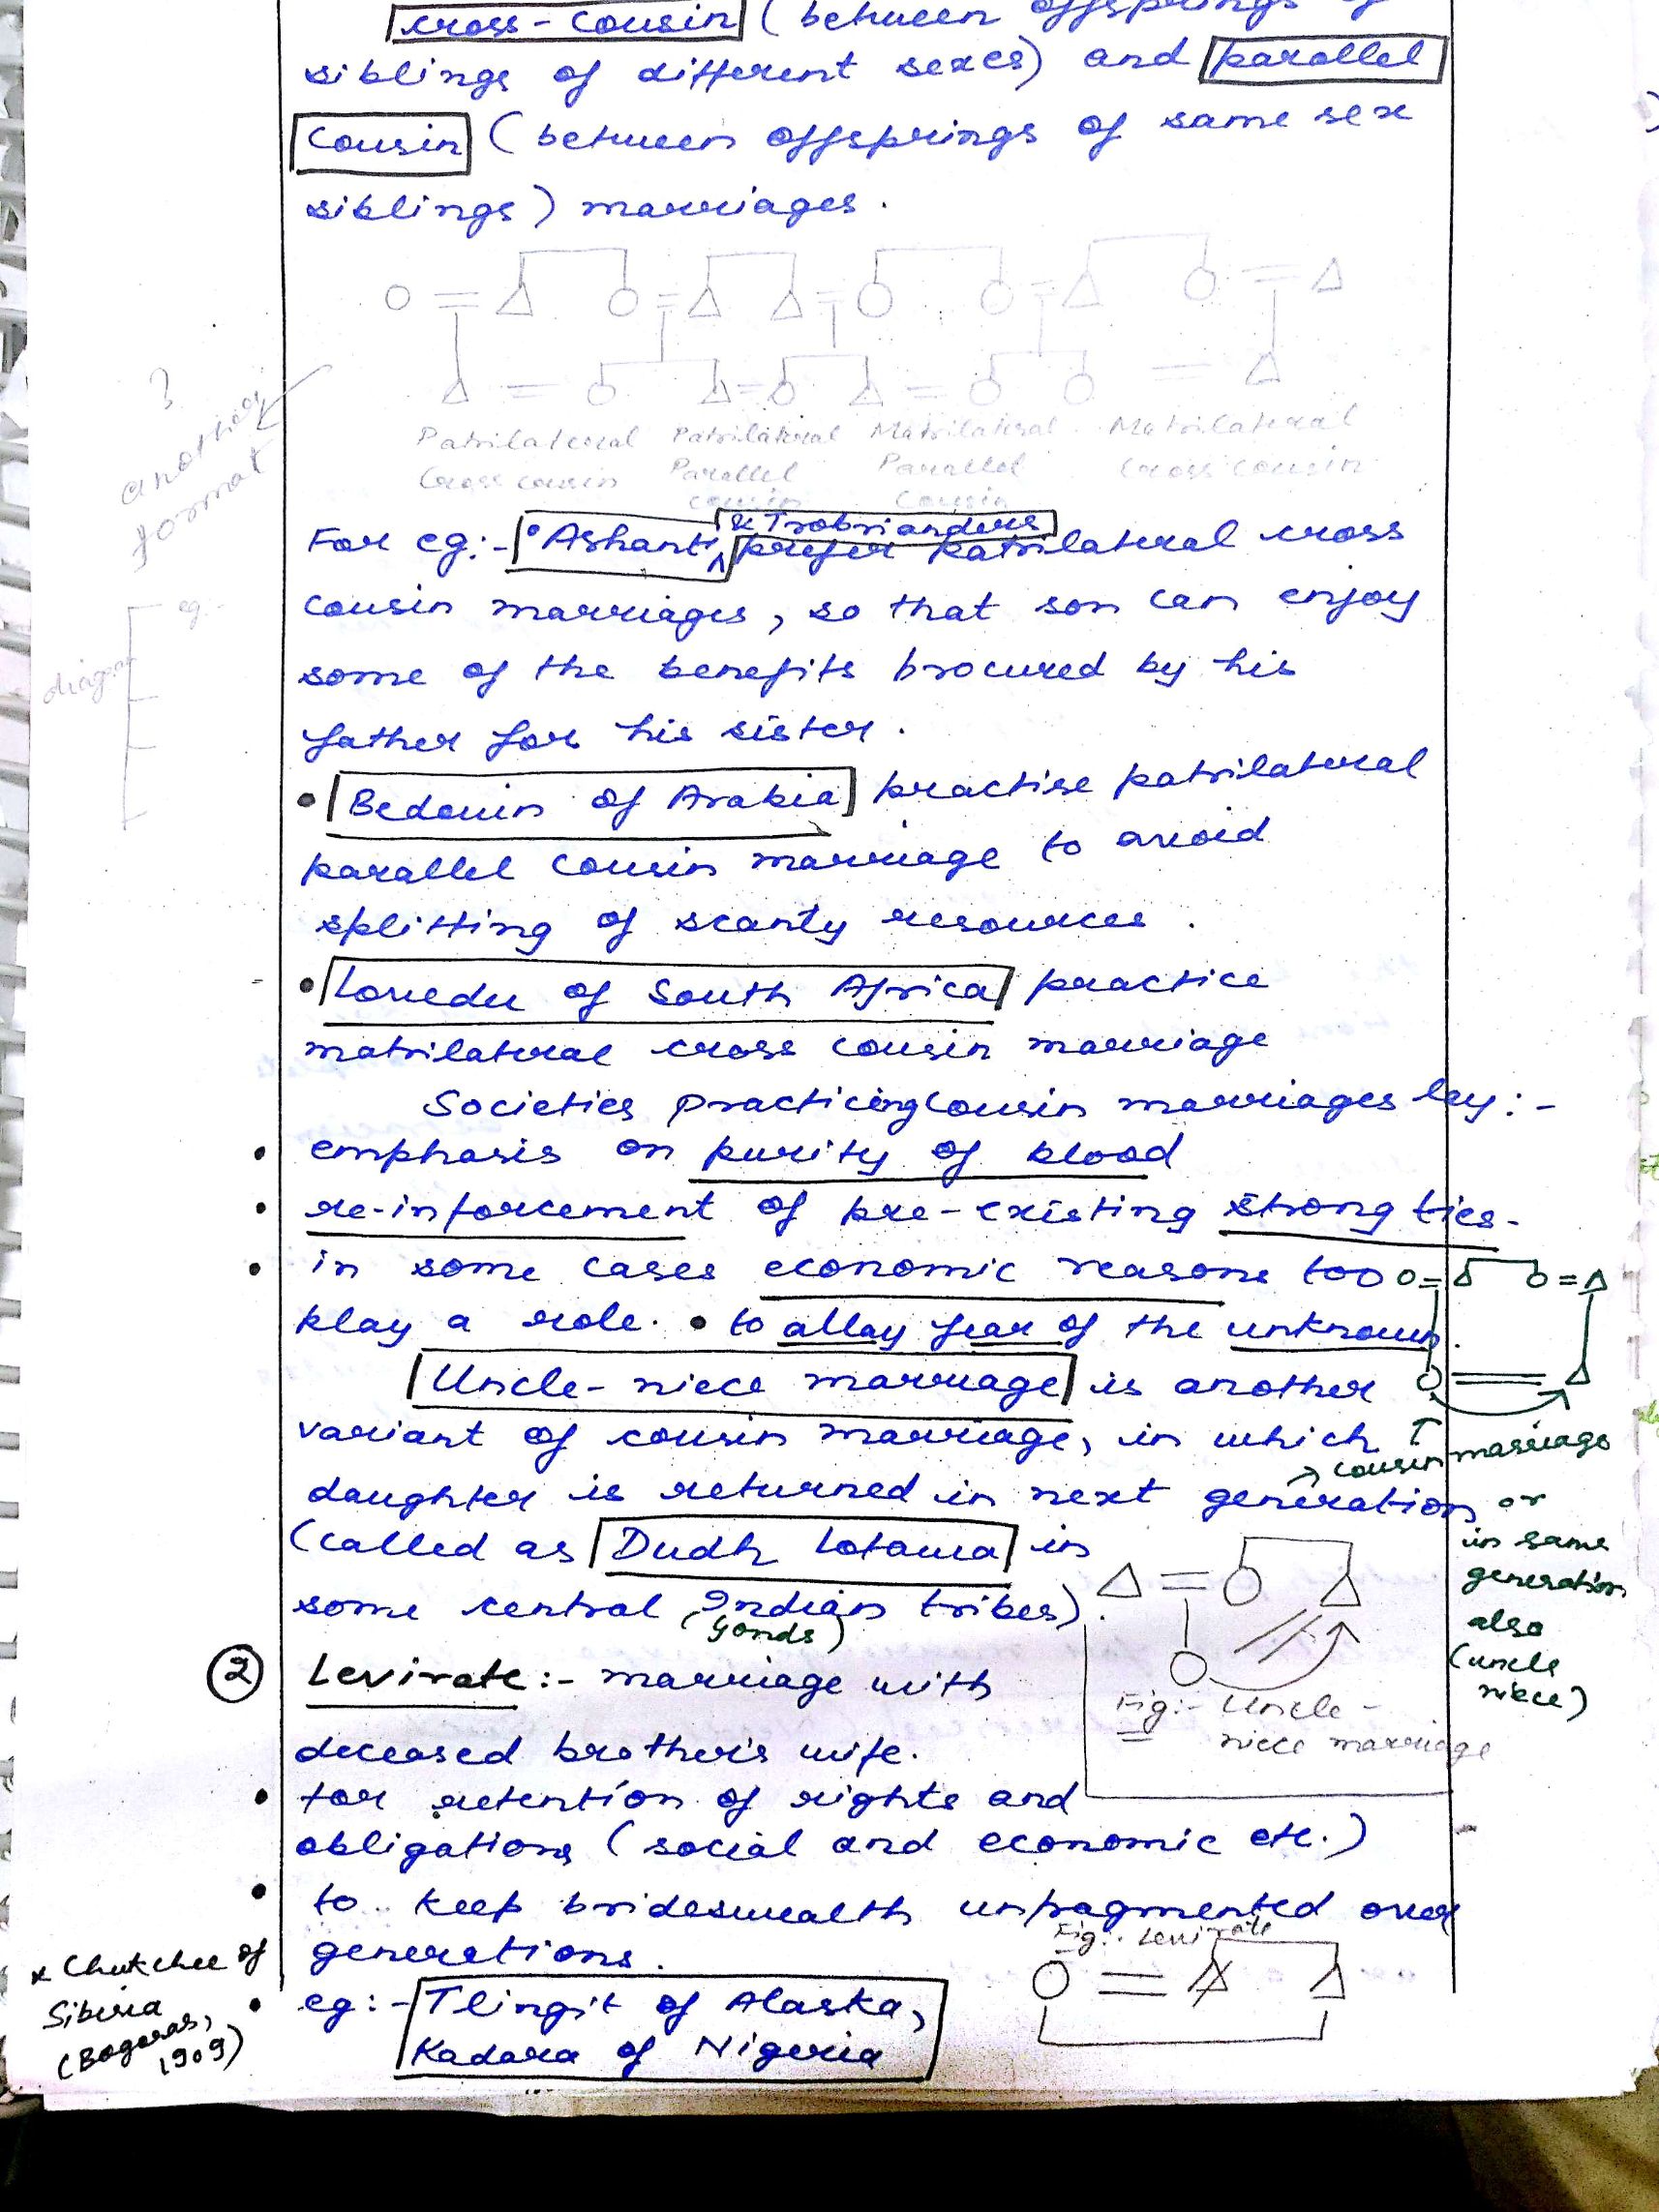 cross-cousin (between offsprings of
siblings of different sexes) and parallel
cousin (between offsprings of same sex
siblings) marriages.
Patrilateral Patrilateral Matrilateral Matrilateral
Cross cousin Parallel Parallel Cross cousin
cousin Cousin
?
another
format
eg:-
diagram
& Trobrianders
For eg:- Ashanti prefer patrilateral cross
cousin marriages, so that son can enjoy
some of the benefits procured by his
father for his sister.
• Bedouin of Arabia practise patrilateral
parallel cousin marriage to avoid
splitting of scanty resources.
• Lovedu of South Africa practice
matrilateral cross cousin marriage
Societies practicing cousin marriages lay:-
• emphasis on purity of blood
• re-inforcement of pre-existing strong ties.
• in some cases economic reasons too
play a role. • to allay fear of the unknown.
Uncle-niece marriage is another
variant of cousin marriage, in which
daughter is returned in next generation
(called as Dudh Lotawa in
some central Indian tribes).
(Gonds)
→ cousin marriage
or
in same
generation
also
(uncle
niece)
Fig:- Uncle-
niece marriage
② Levirate:- marriage with
deceased brother's wife.
• for retention of rights and
obligations (social and economic etc.)
• to keep brideswealth unfragmented over
generations.
Fig:- Levirate
• eg:- Tlingit of Alaska,
Kadara of Nigeria
* Chukchee of
Siberia
(Bogoras,
1909)